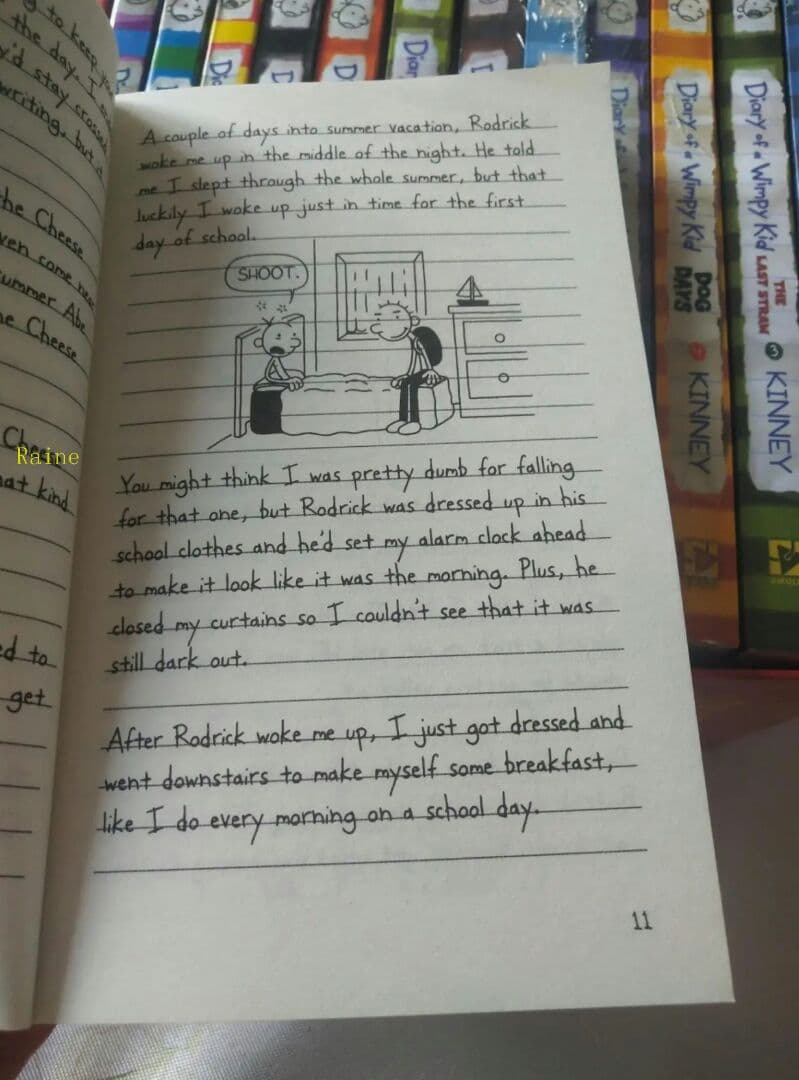 g to keep
the day. I
y'd stay crossed
writing, but
the Cheese
ven come near
ummer Abe
he Cheese
Raine
hat kind
ed to
get
A couple of days into summer vacation, Rodrick
woke me up in the middle of the night. He told
me I slept through the whole summer, but that
luckily I woke up just in time for the first
day of school.
SHOOT.
You might think I was pretty dumb for falling
for that one, but Rodrick was dressed up in his
school clothes and he'd set my alarm clock ahead
to make it look like it was the morning. Plus, he
closed my curtains so I couldn't see that it was
still dark out.
After Rodrick woke me up, I just got dressed and
went downstairs to make myself some breakfast,
like I do every morning on a school day.
11
Diary
Diary of a Wimpy Kid DOG DAYS KINNEY
Diary of a Wimpy Kid THE LAST STRAW 3 KINNEY